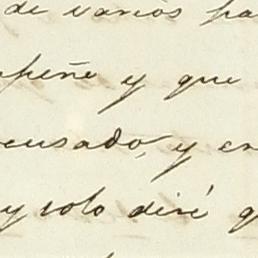 de varios pa
peñe y que
cusado, y en
y solo diré q